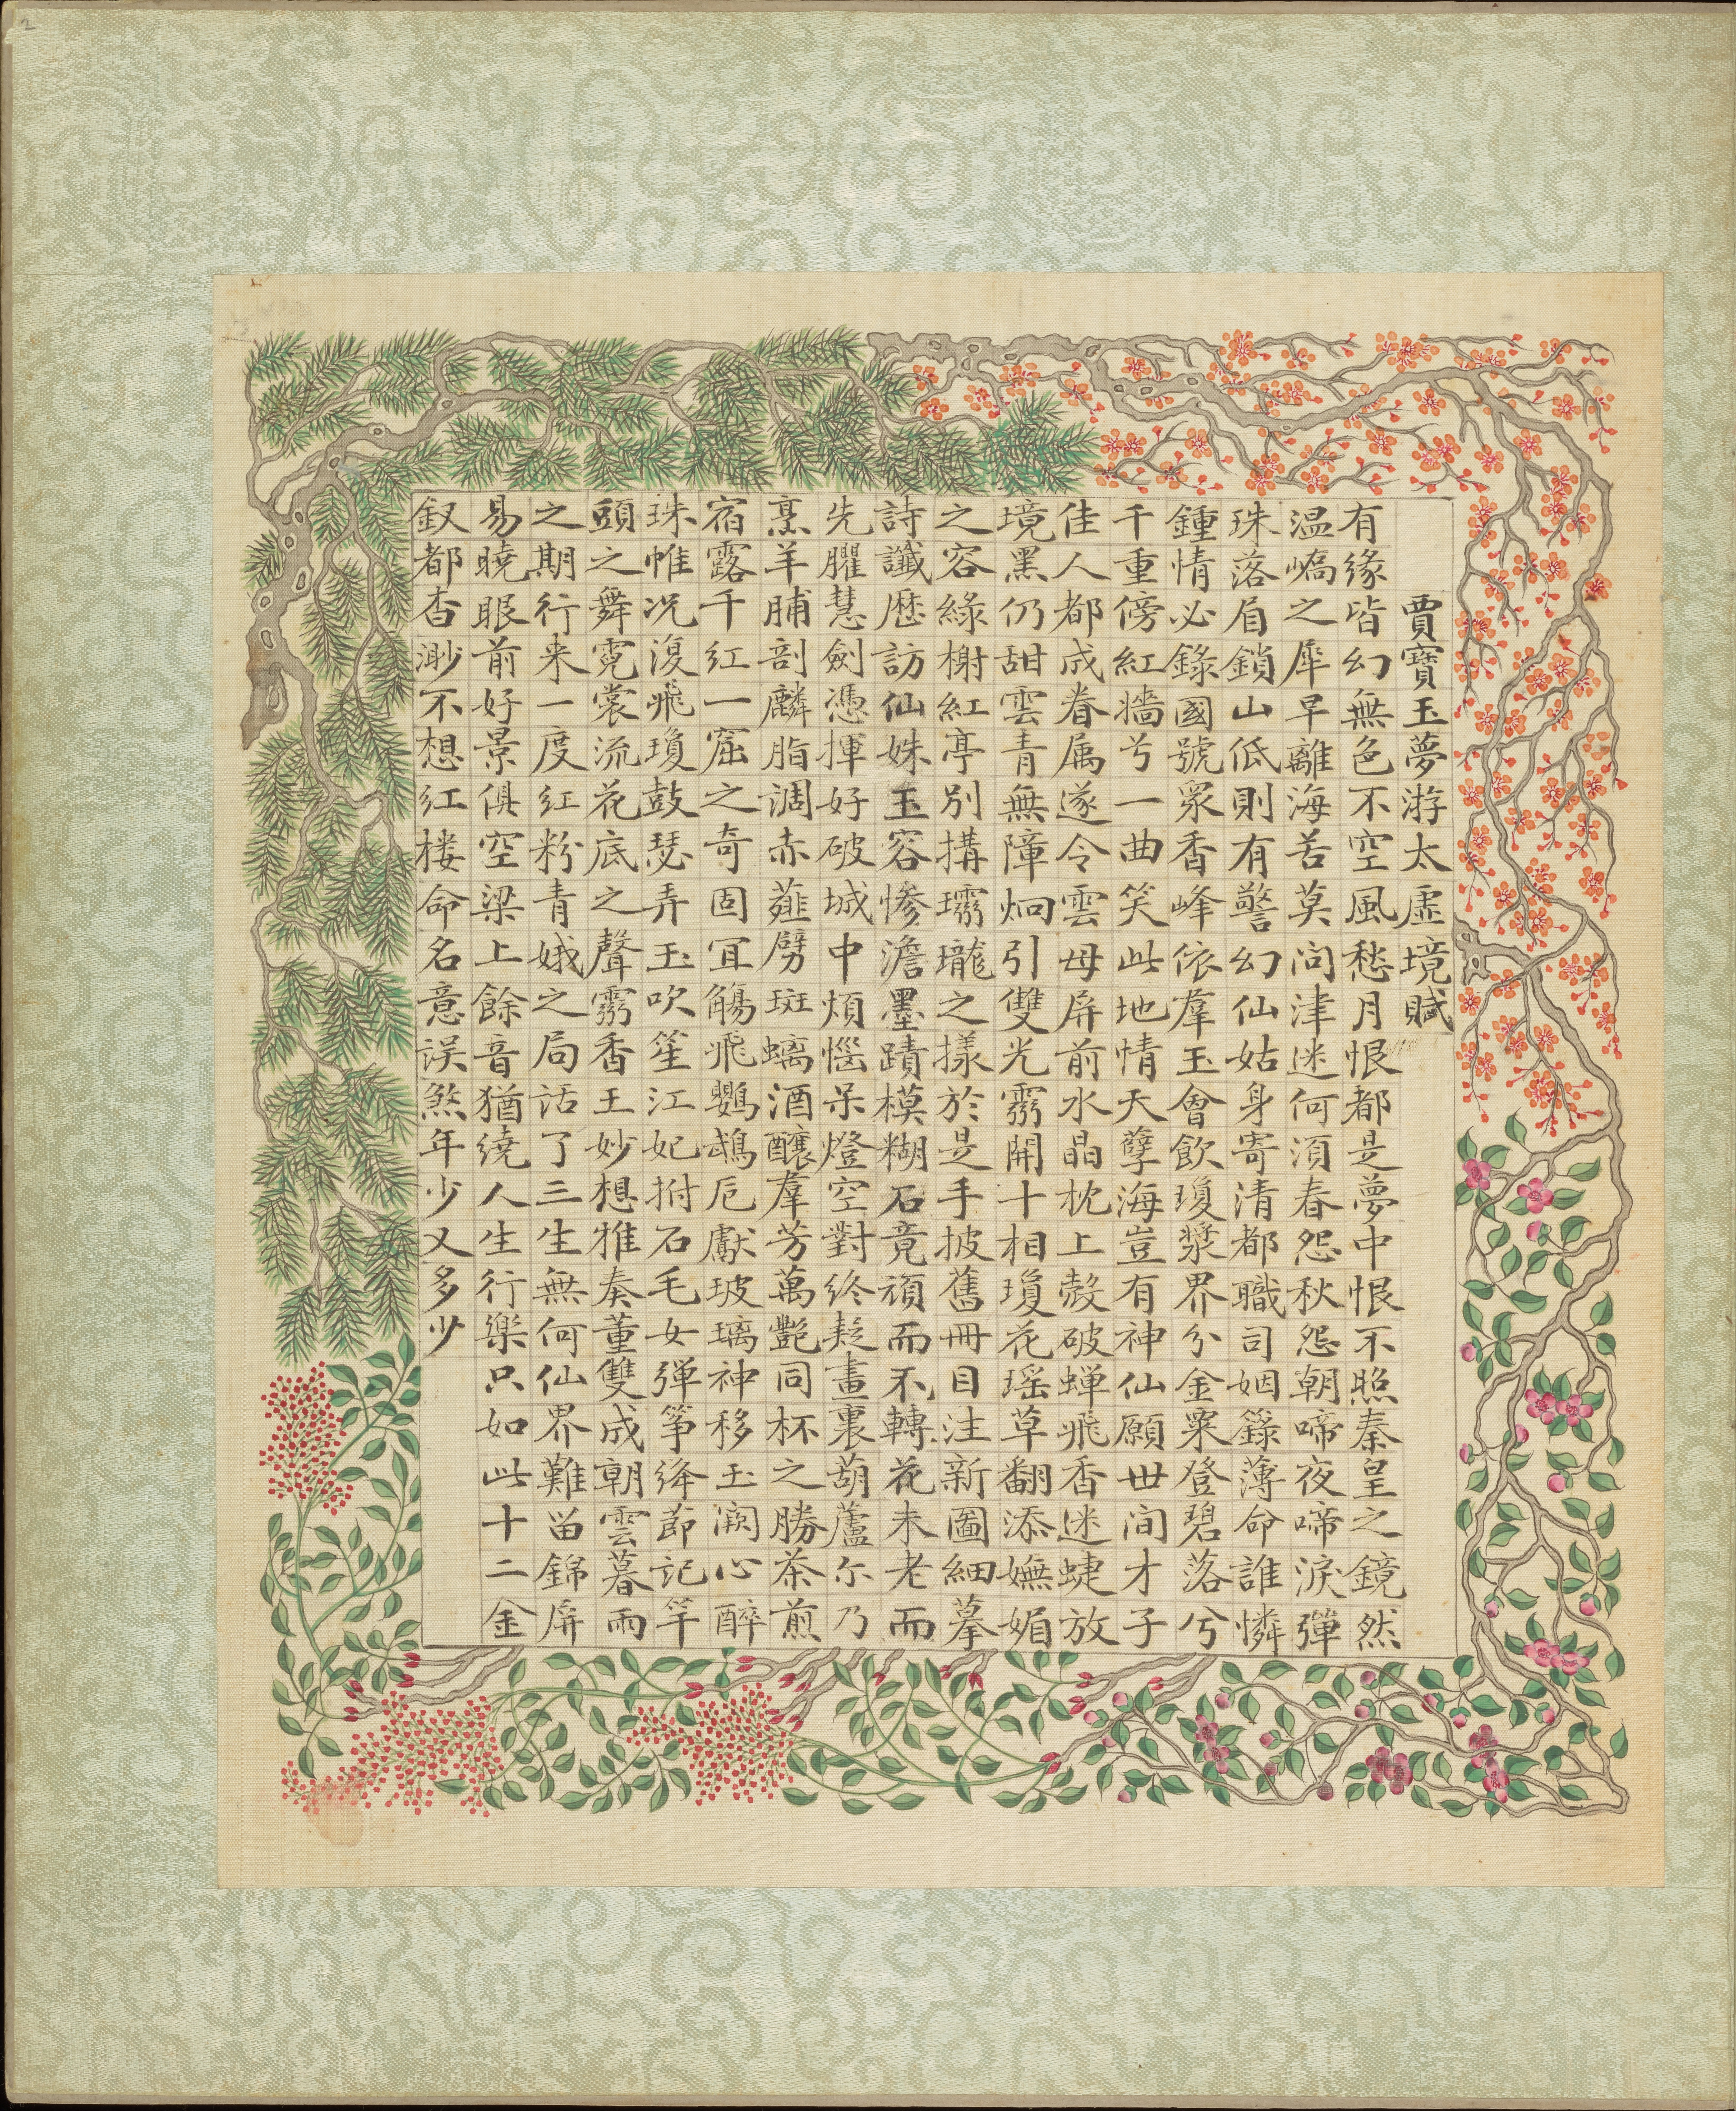 賈寶玉夢游太虛境賦
有緣皆幻無色不空風愁月恨都是夢中恨不照秦皇之鏡然
溫嶠之犀早離海苦莫問津迷何須春怨秋怨朝啼夜啼淚彈
珠落眉鎖山低則有警幻仙姑身寄清都職司姻籙薄命誰憐
鍾情必錄國號眾香峰依羣玉會飲瓊漿界分金粟登碧落兮
千重傍紅牆兮一曲笑此地情天孽海豈有神仙願世间才子
佳人都成眷属遂令雲母屏前水晶枕上殼破蟬飛香迷蜨放
境黑仍甜雲青無障炯引雙光霛開十相瓊花瑶草翻添嫵媚
之容緑榭紅亭別搆瓏之㨾於是手披舊冊目注新圖細摹
詩讖歷訪仙姝玉容慘澹墨蹟模糊石竟頑而不轉花未老而
先臞慧劍憑揮好破城中煩惱呆燈空對終疑畫裏葫蘆尓乃
烹羊脯剖麟脂調赤薤劈斑螭酒釀羣芳萬艷同杯之勝茶煎
宿露千紅一窟之奇固宜觴飛鸚鵡卮獻玻璃神移玉闕心醉
珠帷况復飛瓊鼓瑟弄玉吹笙江妃拊石毛女彈筝絳節記竿
頭之舞霓裳流花底之聲霛香王妙想雅奏董雙成朝雲暮雨
之期行来一度紅粉青娥之局話了三生無何仙界難留錦屏
易曉眼前好景俱空梁上餘音猶繞人生行樂只如此十二金
釵都杳渺不想红楼命名意误煞年少又多少
2